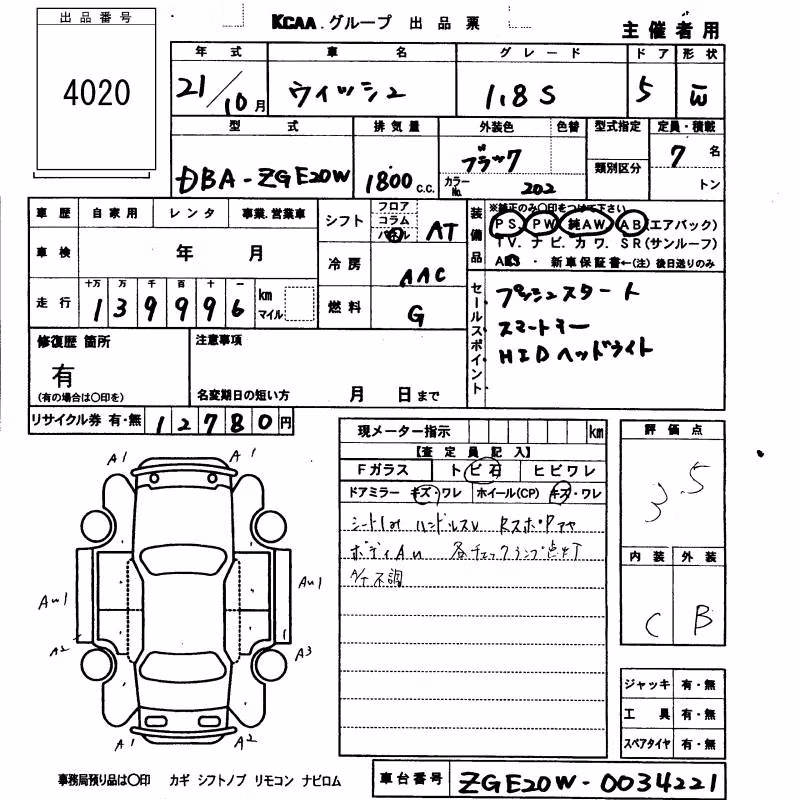 出品番号
4020
KCAA.グループ 出品票
主催者用
年式 車名 グレード ドア 形状
21/10月 ウィッシュ 1.8S 5 W
型式 排気量 外装色 色替 型式指定 定員・積載
DBA-ZGE20W 1800c.c. ブラック カラーNo. 202 類別区分 7名 トン
車歴 自家用 レンタ 事業.営業車
車検 年 月
走行 十万 万 千 百 十 一
139996 km マイル
シフト フロア コラム パネル AT
冷房 AAC
燃料 G
装備品 ※純正のみ○印をつけて下さい
PS. PW. 純AW. AB(エアバック)
TV. ナビ. カワ. SR(サンルーフ)
ABS ・ 新車保証書←(注)後日送りのみ
セールスポイント
プッシュスタート
スマートキー
HIDヘッドライト
修復歴 箇所
有
(有の場合は○印を)
注意事項
名変期日の短い方 月 日まで
リサイクル券 有・無 12780円
現メーター指示 km
【査定員記入】
Fガラス トビ石 ヒビワレ
ドアミラー キズ・ワレ ホイール(CP) キズ・ワレ
シート1m ハンドルスレ RスポPアセ
ボディAu 各チェックランプ点灯
A/T不調
評価点
3.5
内装 外装
C B
A1 A1
AW1 AW1
A2 A3
A1 A2
ジャッキ 有・無
工具 有・無
スペアタイヤ 有・無
事務局預り品は○印 カギ シフトノブ リモコン ナビロム
車台番号 ZGE20W-0034221